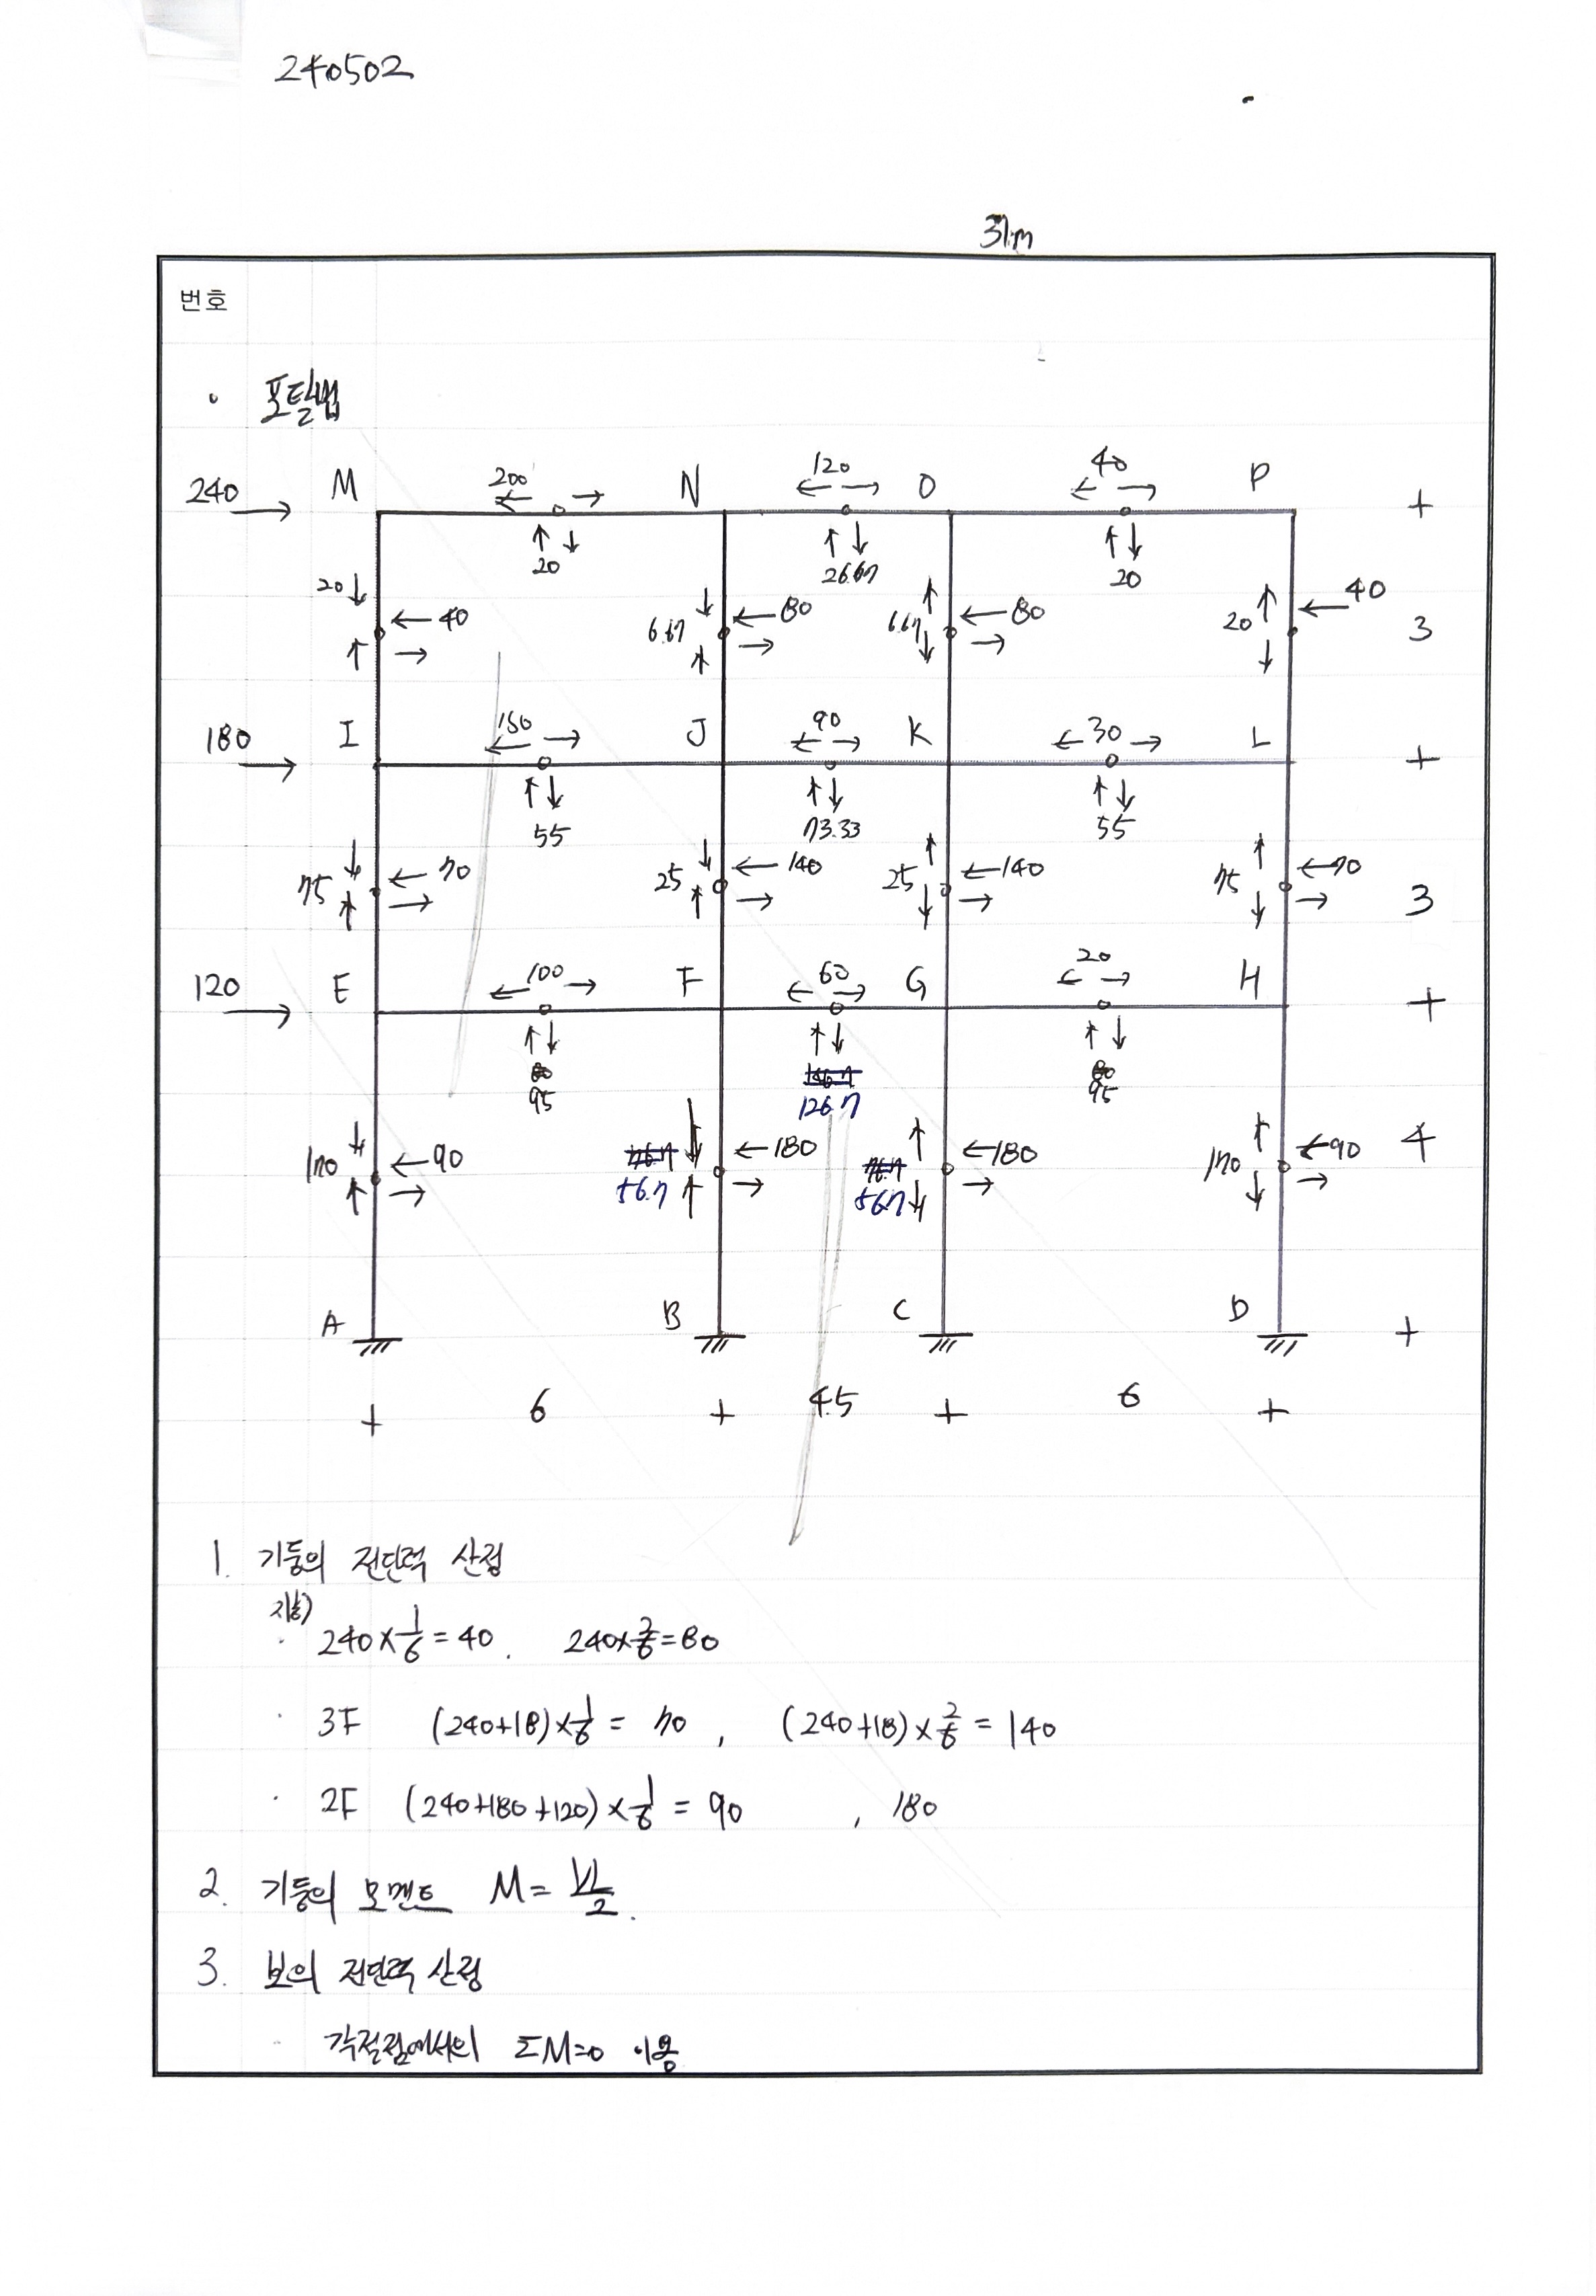 240502
31m
번호
· 포탈법
240 M 200 N 120 O 40 P
20 26.67 20
20 40 6.67 80 6.67 80 20 40 3
180 I 150 J 90 K 30 L
55 73.33 55
75 70 25 140 25 140 75 70 3
120 E 100 F 60 G 20 H
95 126.7 95
170 90 56.7 180 56.7 180 170 90 4
A B C D
6 4.5 6
1. 기둥의 전단력 산정
지붕)
· 240×1/6=40. 240×2/6=80
· 3F (240+18)×1/6= 70 , (240+18)×2/6=140
· 2F (240+180+120)×1/6=90 , 180
2. 기둥의 모멘트 M=VL/2.
3. 보의 전단력 산정
- 각절점에서의 ΣM=0 이용